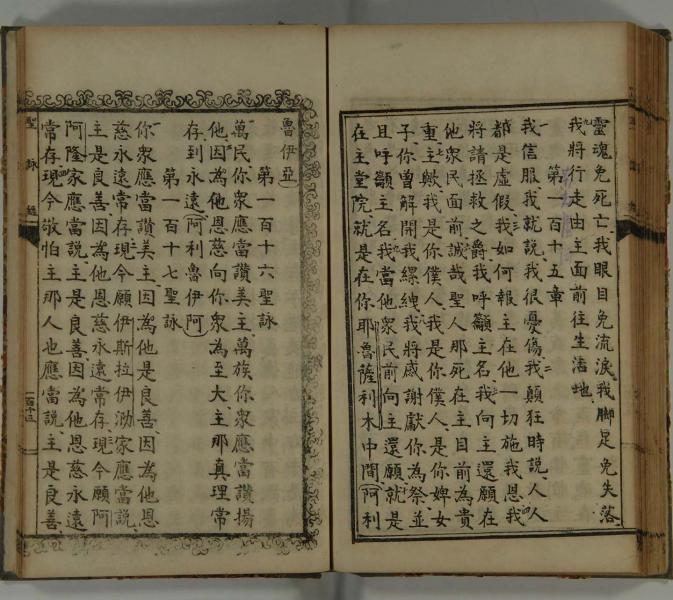 靈魂免死亡我眼目免流淚我脚足免失落
我將行走由主面前往生活地
第一百十五章
我信服我就說我很憂傷我顛狂時說人人
都是虛假我如何報主在他一切施我恩我
將請拯救之爵我呼籲主名我向主還願在
他衆民面前誠哉聖人那死在主目前為貴
重主歟我是你僕人我是你僕人是你婢女
子你曾解開我縲絏我將感謝獻你為祭並
且呼籲主名我當他衆民前向主還願就是
在主堂院就是在你耶魯薩利木中間阿利
魯伊亞
第一百十六聖詠
萬民你衆應當讚美主萬族你衆應當讚揚
他因為他恩慈向你衆為至大主那真理常
存到永遠阿利魯伊阿
第一百十七聖詠
你衆應當讚美主因為他是良善因為他恩
慈永遠常存現今願伊斯拉伊泐家應當說
主是良善因為他恩慈永遠常存現今願阿
阿隆家應當說主是良善因為他恩慈永遠
當存現今敬怕主那人也應當說主是良善
聖詠
一百十三